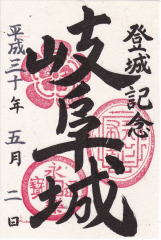 登城記念
岐阜城
平成三十年 五月 二日